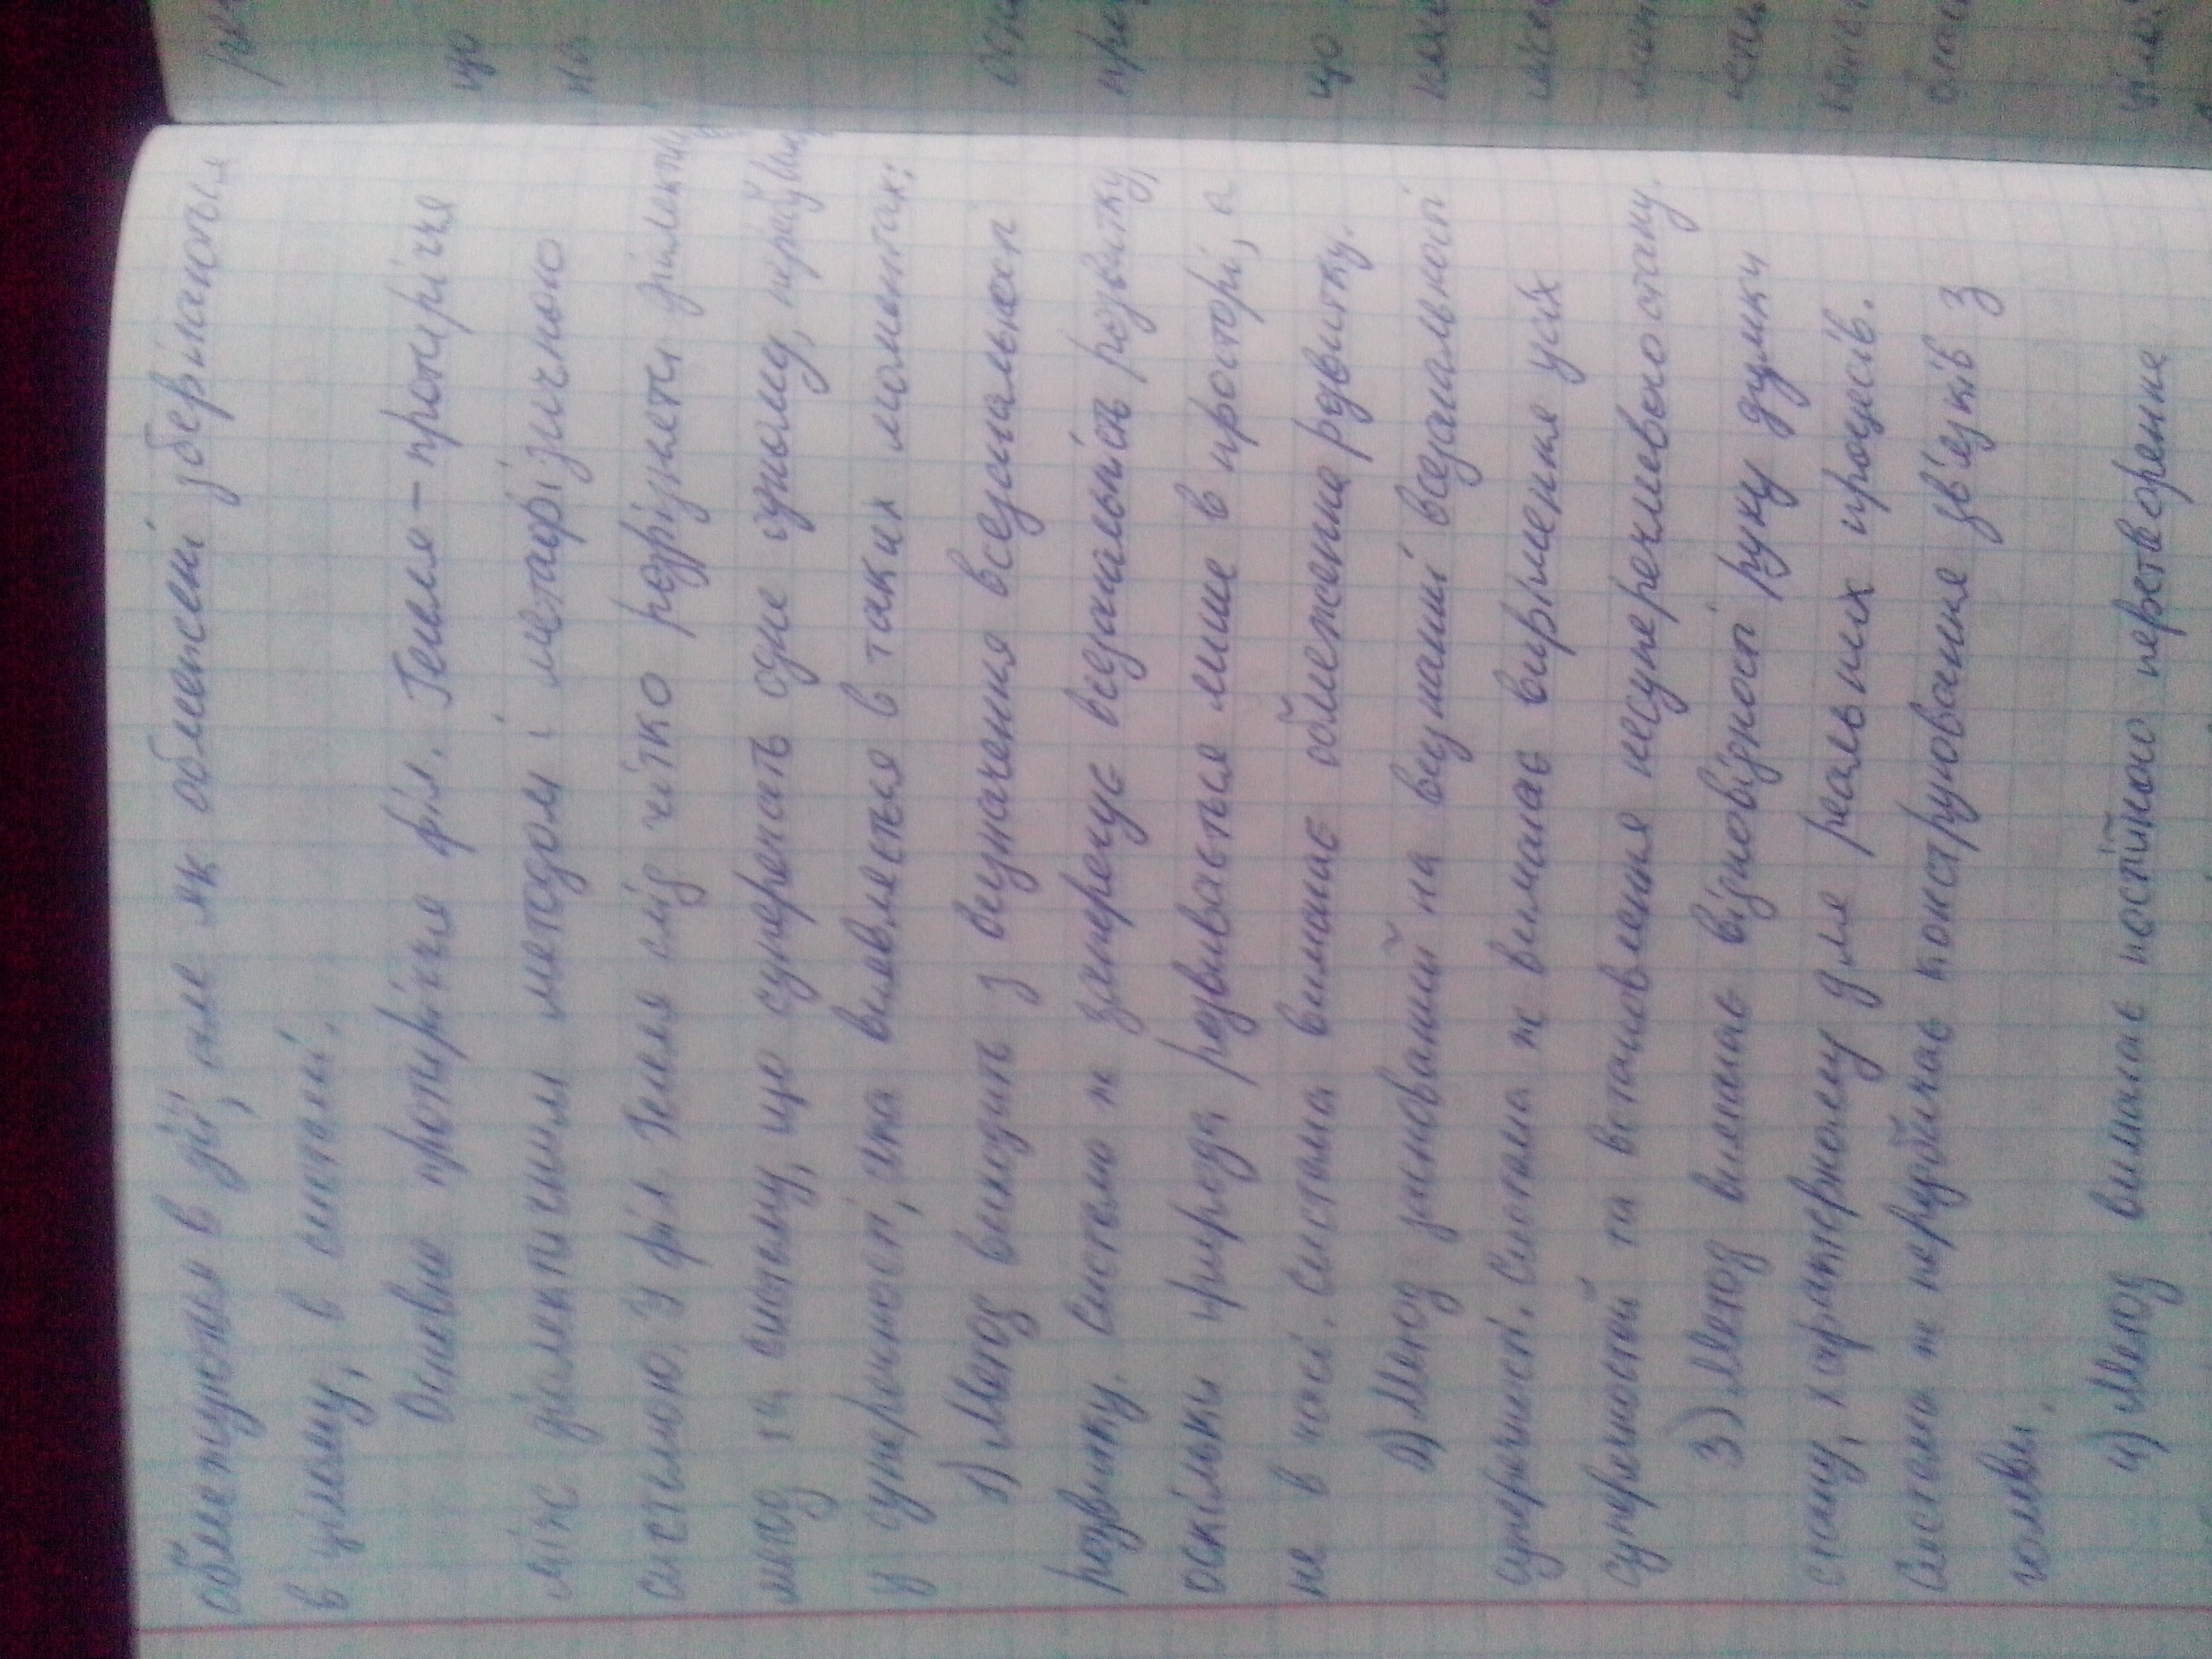 обмежуються в дії, але як обмежені зберігаються
в цілому, в системі.
Основне протиріччя філ. Гегеля – протиріччя
між діалектичним методом і метафізичною
системою. У філ. Гегеля слід чітко розрізняти діалектич
метод та систему, що суперечать одне одному,
у суперечності, яка виявляється в таких моментах:
1) Метод виходить з визначення всезагальності
розвитку. Система ж заперечує всезагальність розвитку,
оскільки природа розвивається лише в просторі, а
не в часі. Система вимагає обмеження розвитку.
2) Метод заснований на визнанні всезагальності
суперечності. Система ж вимагає вирішення усіх
суперечностей та встановлення несуперечливого стану.
3) Метод вимагає відповідності руху думки
стану, характерному для реальних процесів.
Система ж передбачає конструювання зв'язків з
голови.
4) Метод вимагає постійного перетворення
що
що